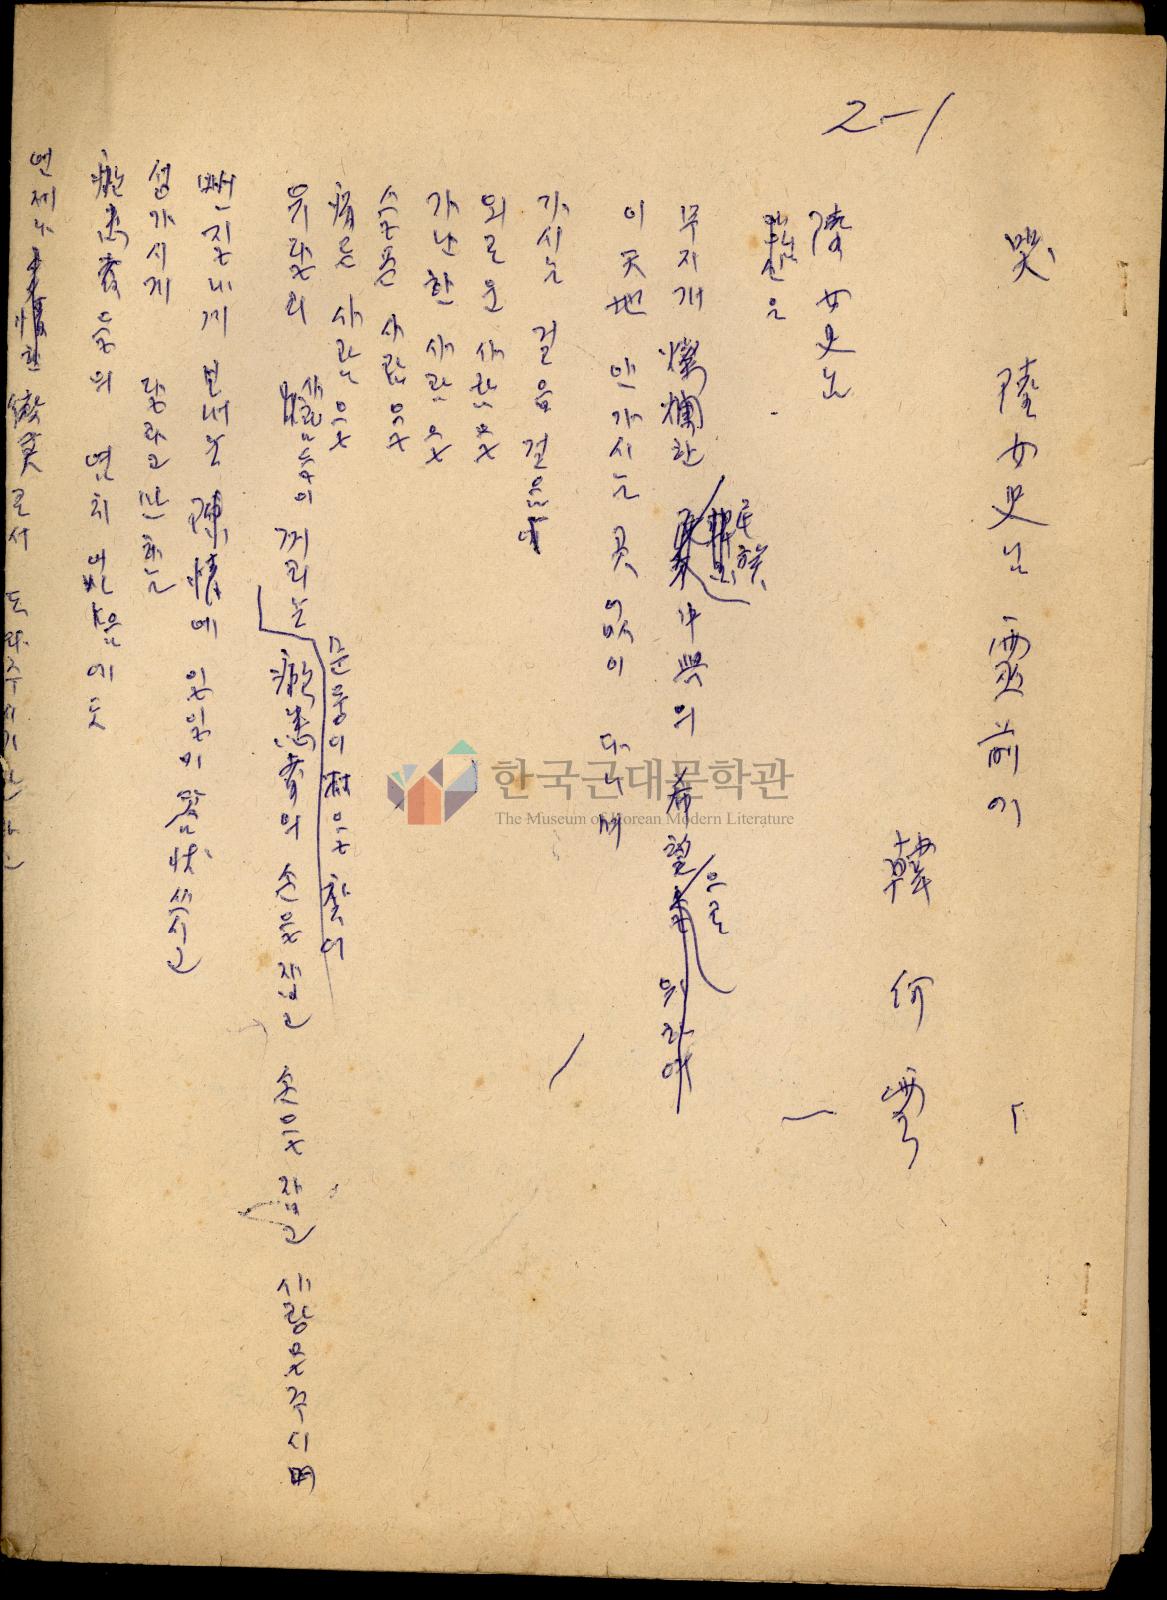 2-1
哭 陸女史님 靈前에
韓何雲
陸女史는
당신은
무지개 燦爛한 民族中興의 希望으로 위하여
이 天地 안가시는 곳 없이 다니며
가시는 걸음 걸음
외로운 사람을
가난한 사람을
슬픈 사람을
病든 사람을
문둥이村을 찾어
사람들이 꺼리는 癩患者의 손을 잡고 손을 잡고 사랑을 주시며
번질나게 보내온 陳情에 일일이 答狀쓰시고
성가시게 달라고만 하는
癩患者들의 염치없음에도
언제나 한 微笑로서 도와주시기만
한국근대문학관
The Museum of Korean Modern Literature